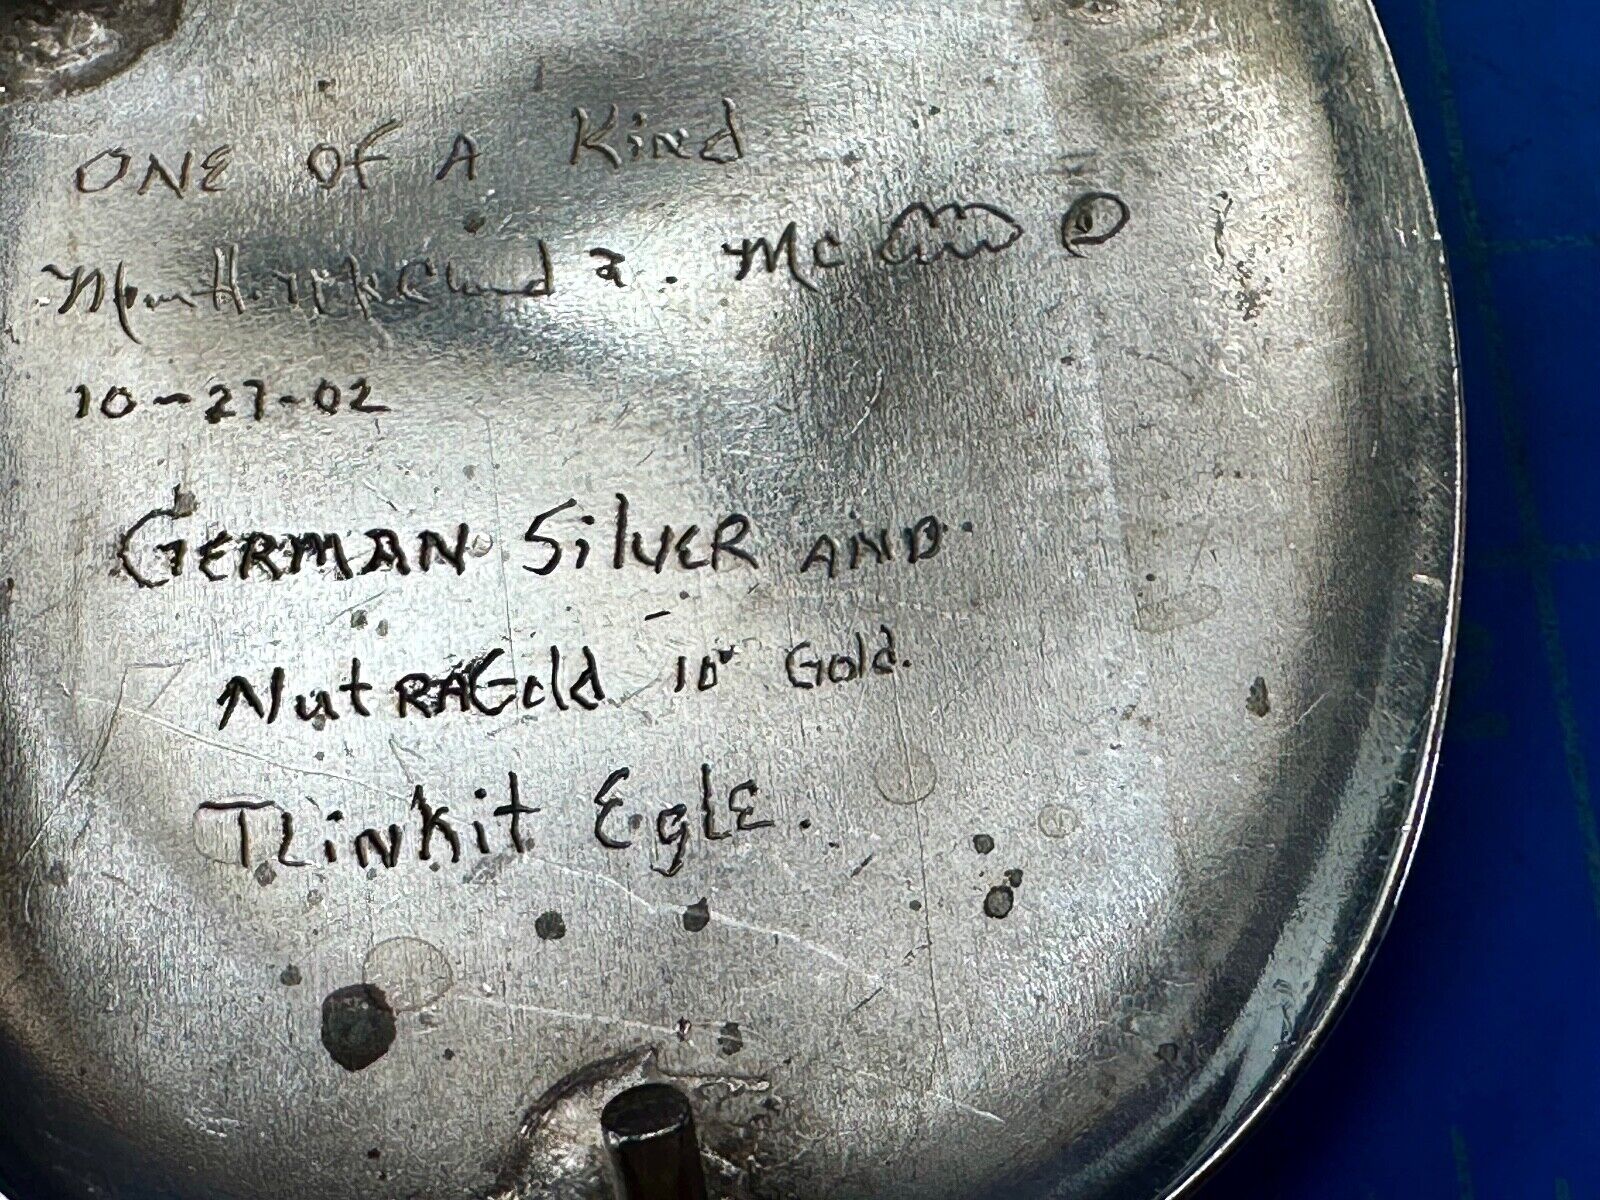 ONE OF A Kind
Mc
10-27-02
GERMAN SilvER AND
NutRAGold 10 Gold.
TLinKit EglE.